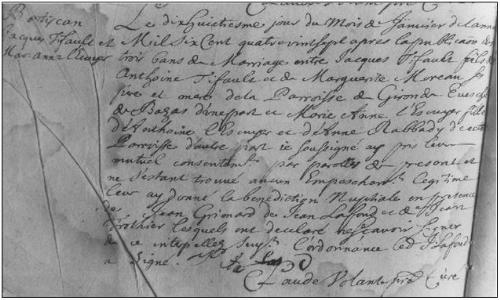 Batiscan
Jacques Tifault et
Mar anne lecuyer
Le dixhuictiesme jour du Mois de Janvier de l'annee
Mil Six Cent quatre vint sept apres la publicaon de
trois bans de Mariage entre Jacques Tifault fils de
Anthoine Tifault et de Marguerite Moreau ses
pere et mere de la Parroisse de Gironde Evesché
de Bazas d'une part et Marie Anne l'Escuyer fille
d'Anthoine l'Escuyer et de Anne Rabbady de cette
Parroisse d'autre part je soussigné ay pris leur
mutuel consentem.t par parolles de present et
ne s'estant trouvé aucun Empeschem.t legitime
leur ay donné la benediction Nuptiale en presence
de Jean Grimard de Jean Laffond et de Jean
Trothier lesquels ont declaré ne sçavoir signer
de ce interpellez suy.t l'ordonnance led Lafond
a signé.
Claude Volant prb Curé